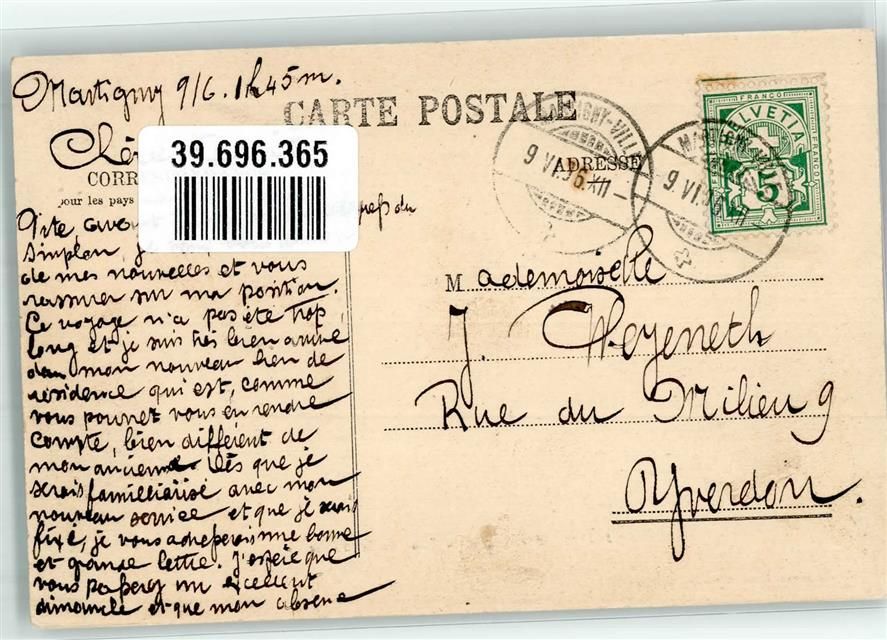 Martigny 9/6. 1h45m.
CARTE POSTALE
39.696.365
CORR
ADRESSE
pour les pays
FRANCO
HELVETIA
FRANCO
5
MARTIGNY-VILLE
9 VI 06 XII
MARTIGNY
9 VI
du
Simplon, j
de mes nouvelles et vous
rassurer sur ma position.
Ce voyage n'a pas été trop
long et je suis très bien arrivé
dans mon nouveau lieu de
résidence qui est, comme
vous pouvez vous en rendre
compte, bien différent de
mon ancienne. Dès que je
serais familliarisé avec mon
nouveau service et que je serais
fixé, je vous adresserais une bonne
et grande lettre. J'espère que
vous passerez un excellent
dimanche et que mon absence
Mademoiselle
J. Weyeneth
Rue du Milieu 9
Yverdon.